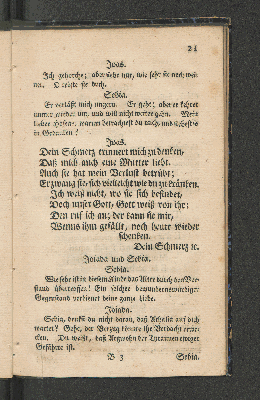 21
Joas.
Ich gehorche; aber siehe nur, wie sehr sie noch wei-
net. O tröste sie doch.
Sebia.
Er verläßt mich ungern. Er geht; aber er kehret
immer wieder um, und will nicht weiter gehn. Mein
lieber Joas, warum betrachtest du mich, und stehest
in Gedanken?
Joas.
Dein Schmerz erinnert mich zu denken,
Daß mich auch eine Mutter liebt.
Auch sie hat mein Verlust betrübt;
Er zwang sie, sich vielleicht wie du zu kränken.
Ich weiß nicht, wo sie sich befindet,
Doch unser Gott, Gott weiß von ihr;
Den ruf ich an; der kann sie mir,
Wenns ihm gefällt, noch heute wieder
schenken.
Dein Schmerz ꝛc.
Jojada und Sebia.
Sebia.
Wie sehr ist in diesem Kinde das Alter durch den Ver-
stand übertroffen! Ein solcher bewundernswürdiger
Gegenstand verdienet deine ganze Liebe.
Jojada.
Sebia, denkst du nicht daran, daß Athalia auf dich
wartet? Gehe, der Verzug könnte ihr Verdacht erwe-
cken. Du weißt, daß Argwohn der Tyrannen ewiger
Gefährte ist.
B 3
Sebia.